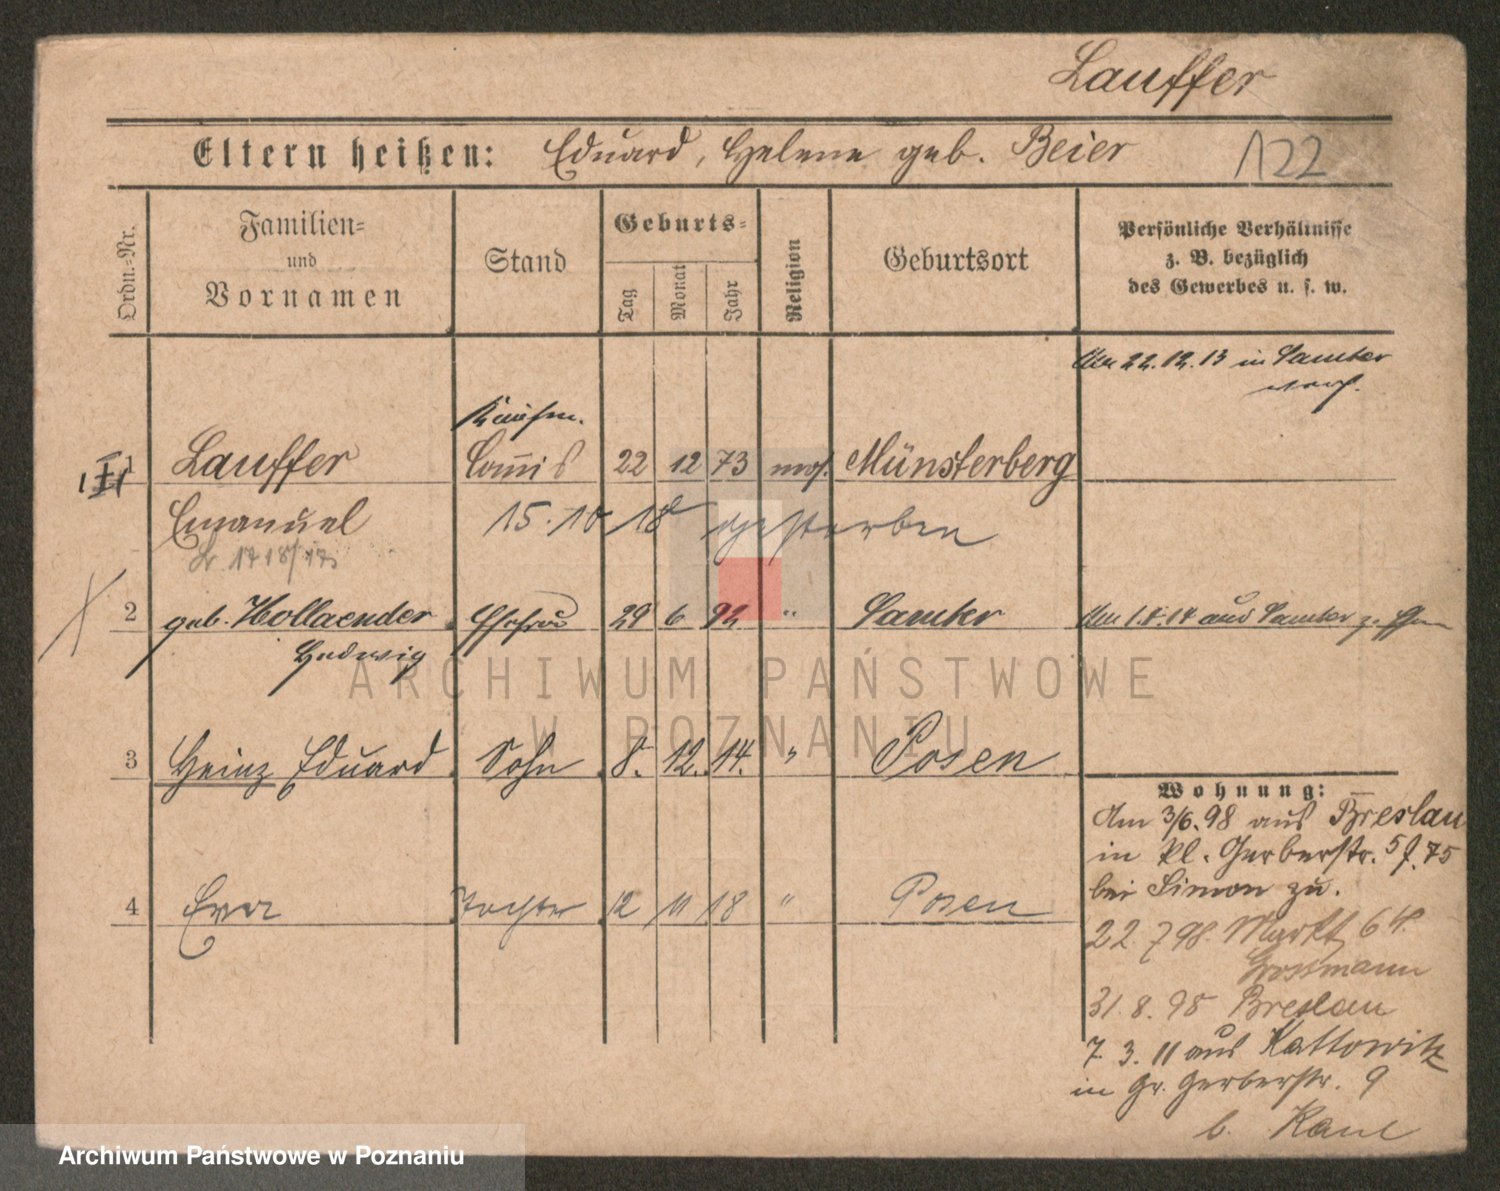 Lauffer
Eltern heißen: Eduard, Helene geb. Beier
122
Ordn.-Nr.
Familien-
und
Vornamen
Stand
Geburts-
Tag
Monat
Jahr
Religion
Geburtsort
Persönliche Verhältnisse
z. B. bezüglich
des Gewerbes u. s. w.
22.12.13 in Samter
Kaufm.
1 Lauffer Commis 22 12 73 mos. Münsterberg
Emanuel 15.10 18 gestorben
2 geb. Hollaender Ehefrau 29 6 92 " Samter
aus Samter
Hedwig
ARCHIWUM PAŃSTWOWE
W POZNANIU
3 Heinz Eduard Sohn 8. 12. 14. " Posen
Wohnung:
Am 3/6.98 aus Breslau
in kl. Gerberstr. 5 f. 75
bei Simon zu.
4 Eva Tochter 12 11 18 " Posen
22.7 98. Markt 64.
Grossmann
31.8.98 Breslau
7.3.11 aus Kattowitz
in Gr. Gerberstr. 9
b.
Archiwum Państwowe w Poznaniu